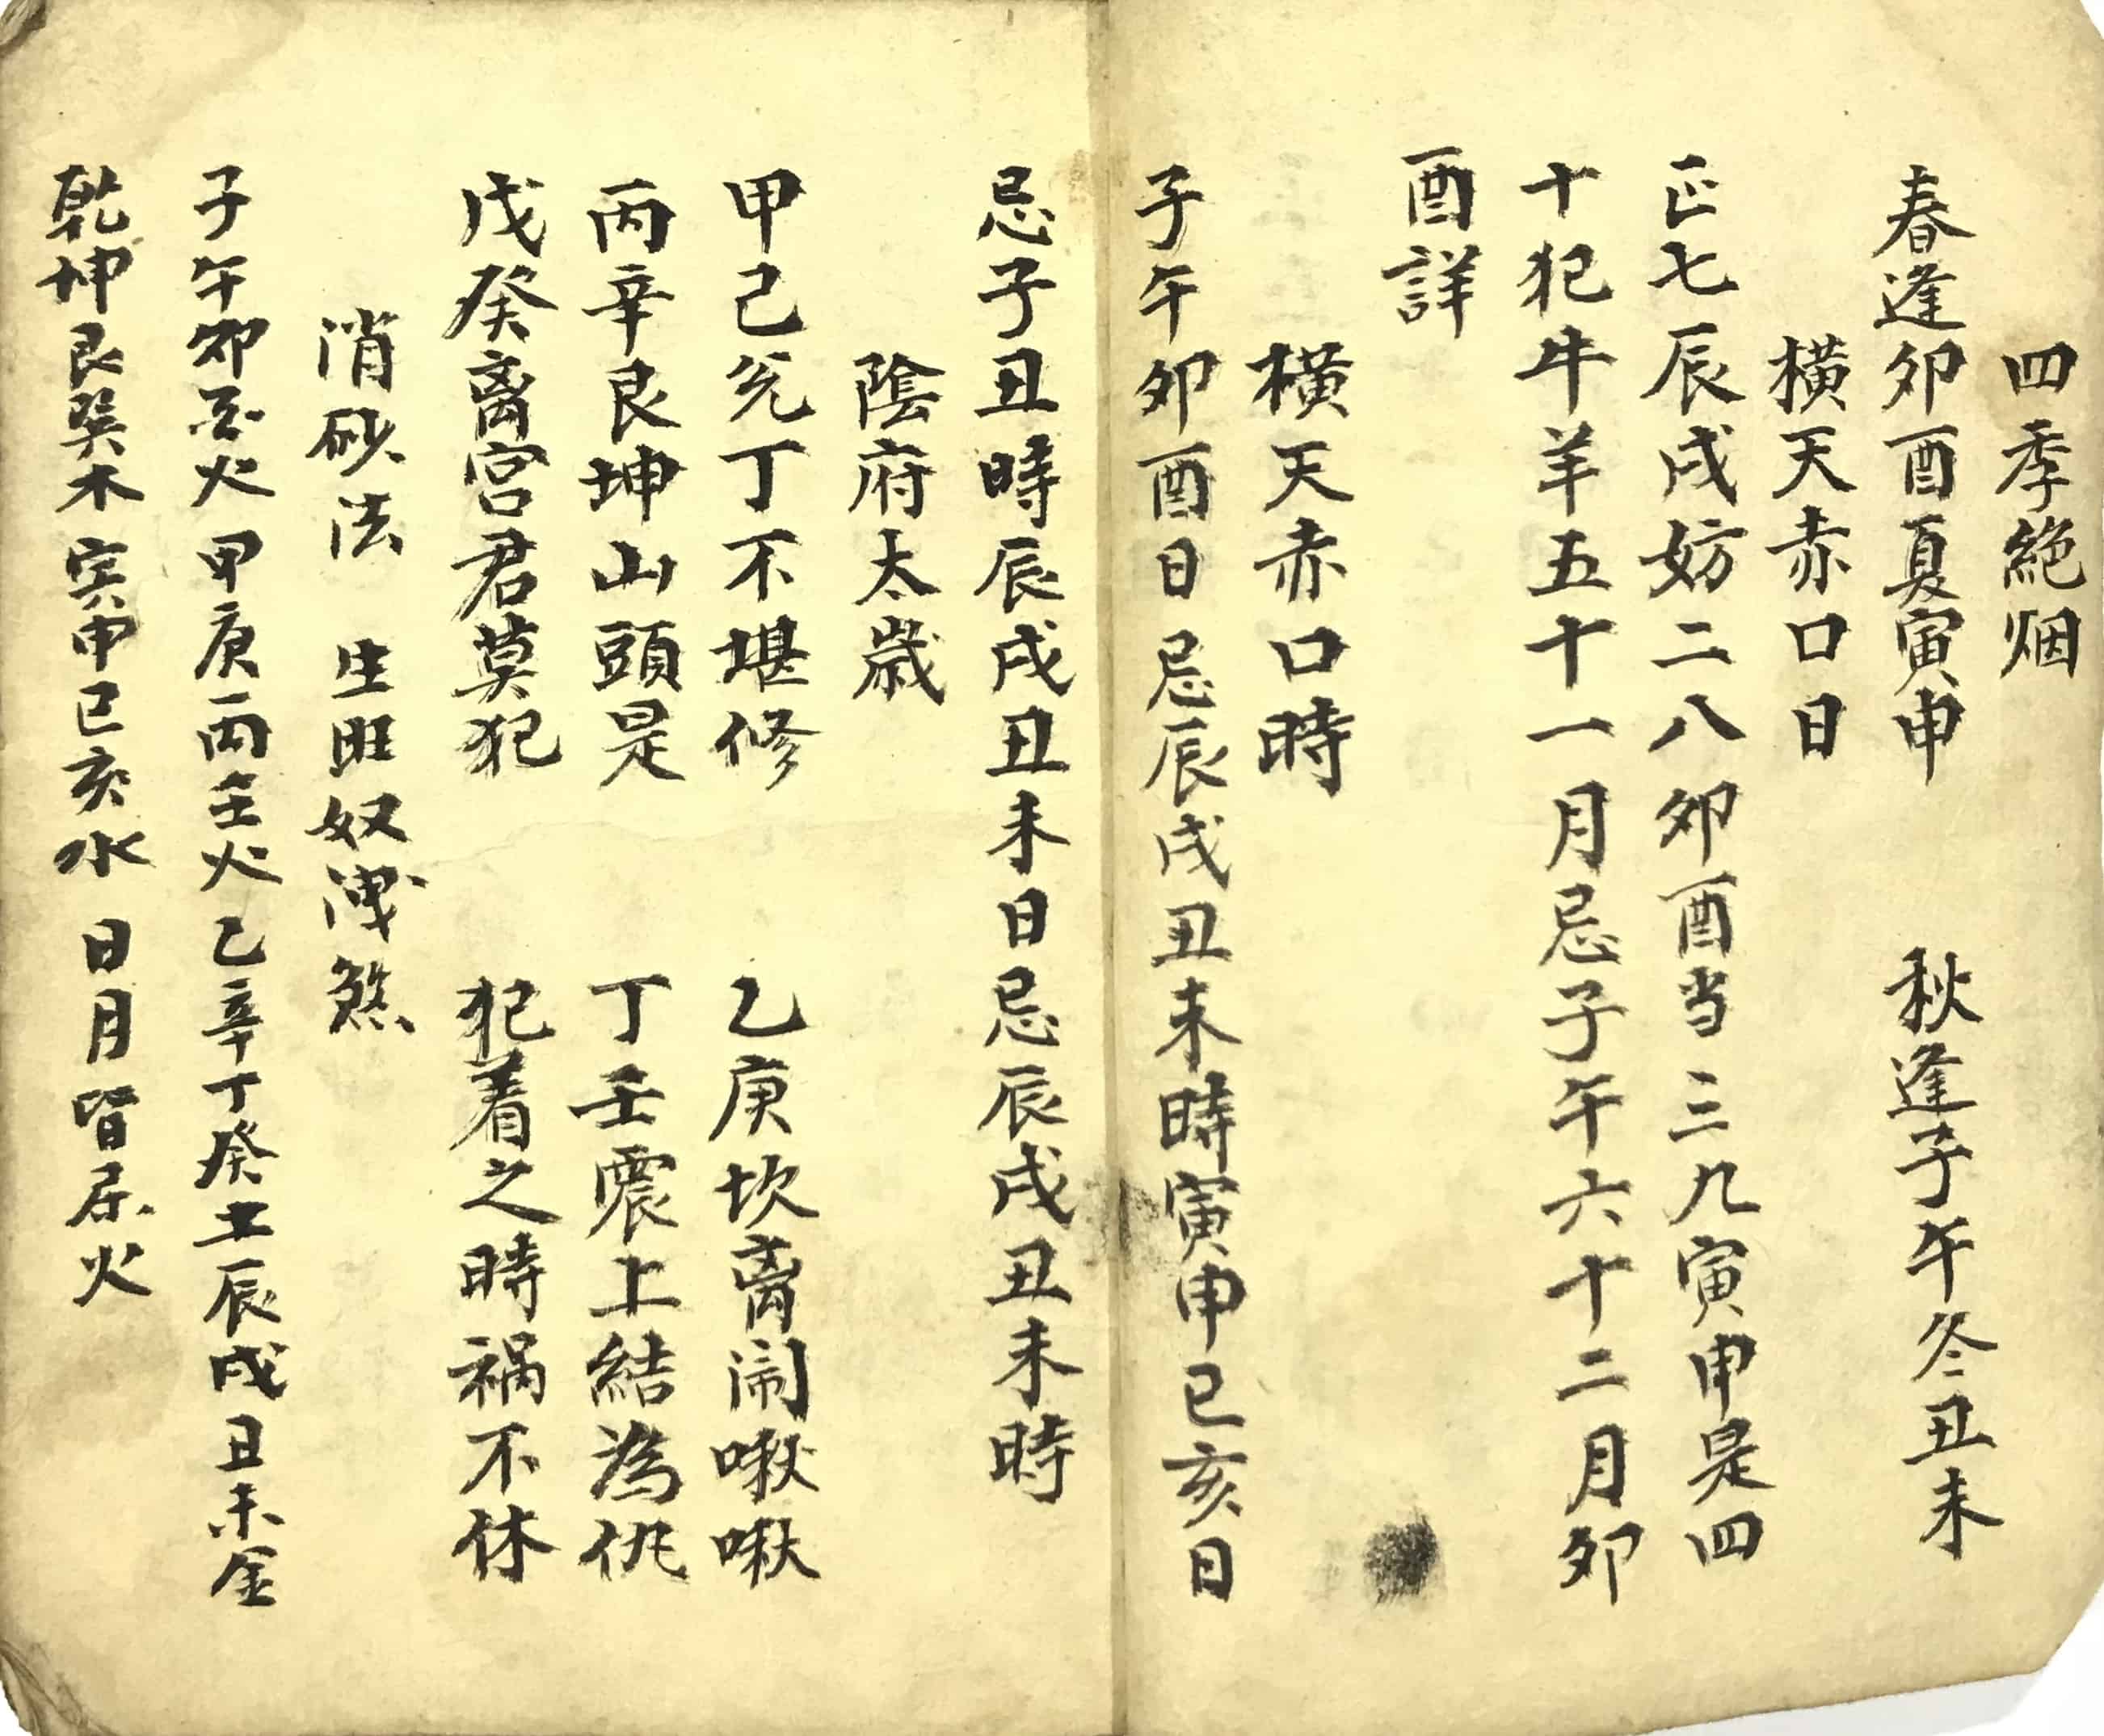 四季絶烟
春逢卯酉夏寅申　秋逢子午冬丑未
橫天赤口日
正七辰戌妨二八卯酉当三九寅申是四
十犯牛羊五十一月忌子午六十二月卯
酉詳
橫天赤口時
子午卯酉日忌辰戌丑未時寅申巳亥日
忌子丑時辰戌丑未日忌辰戌丑未時
陰府太歲
甲己兊丁不堪修　乙庚坎离閙啾啾
丙辛艮坤山頭是　丁壬震上結為仇
戊癸离宮君莫犯　犯着之時禍不休
消砂法　生旺奴洩煞
子午卯酉火甲庚丙壬火乙辛丁癸土辰戌丑未金
乾坤艮巽木寅申巳亥水日月皆屬火